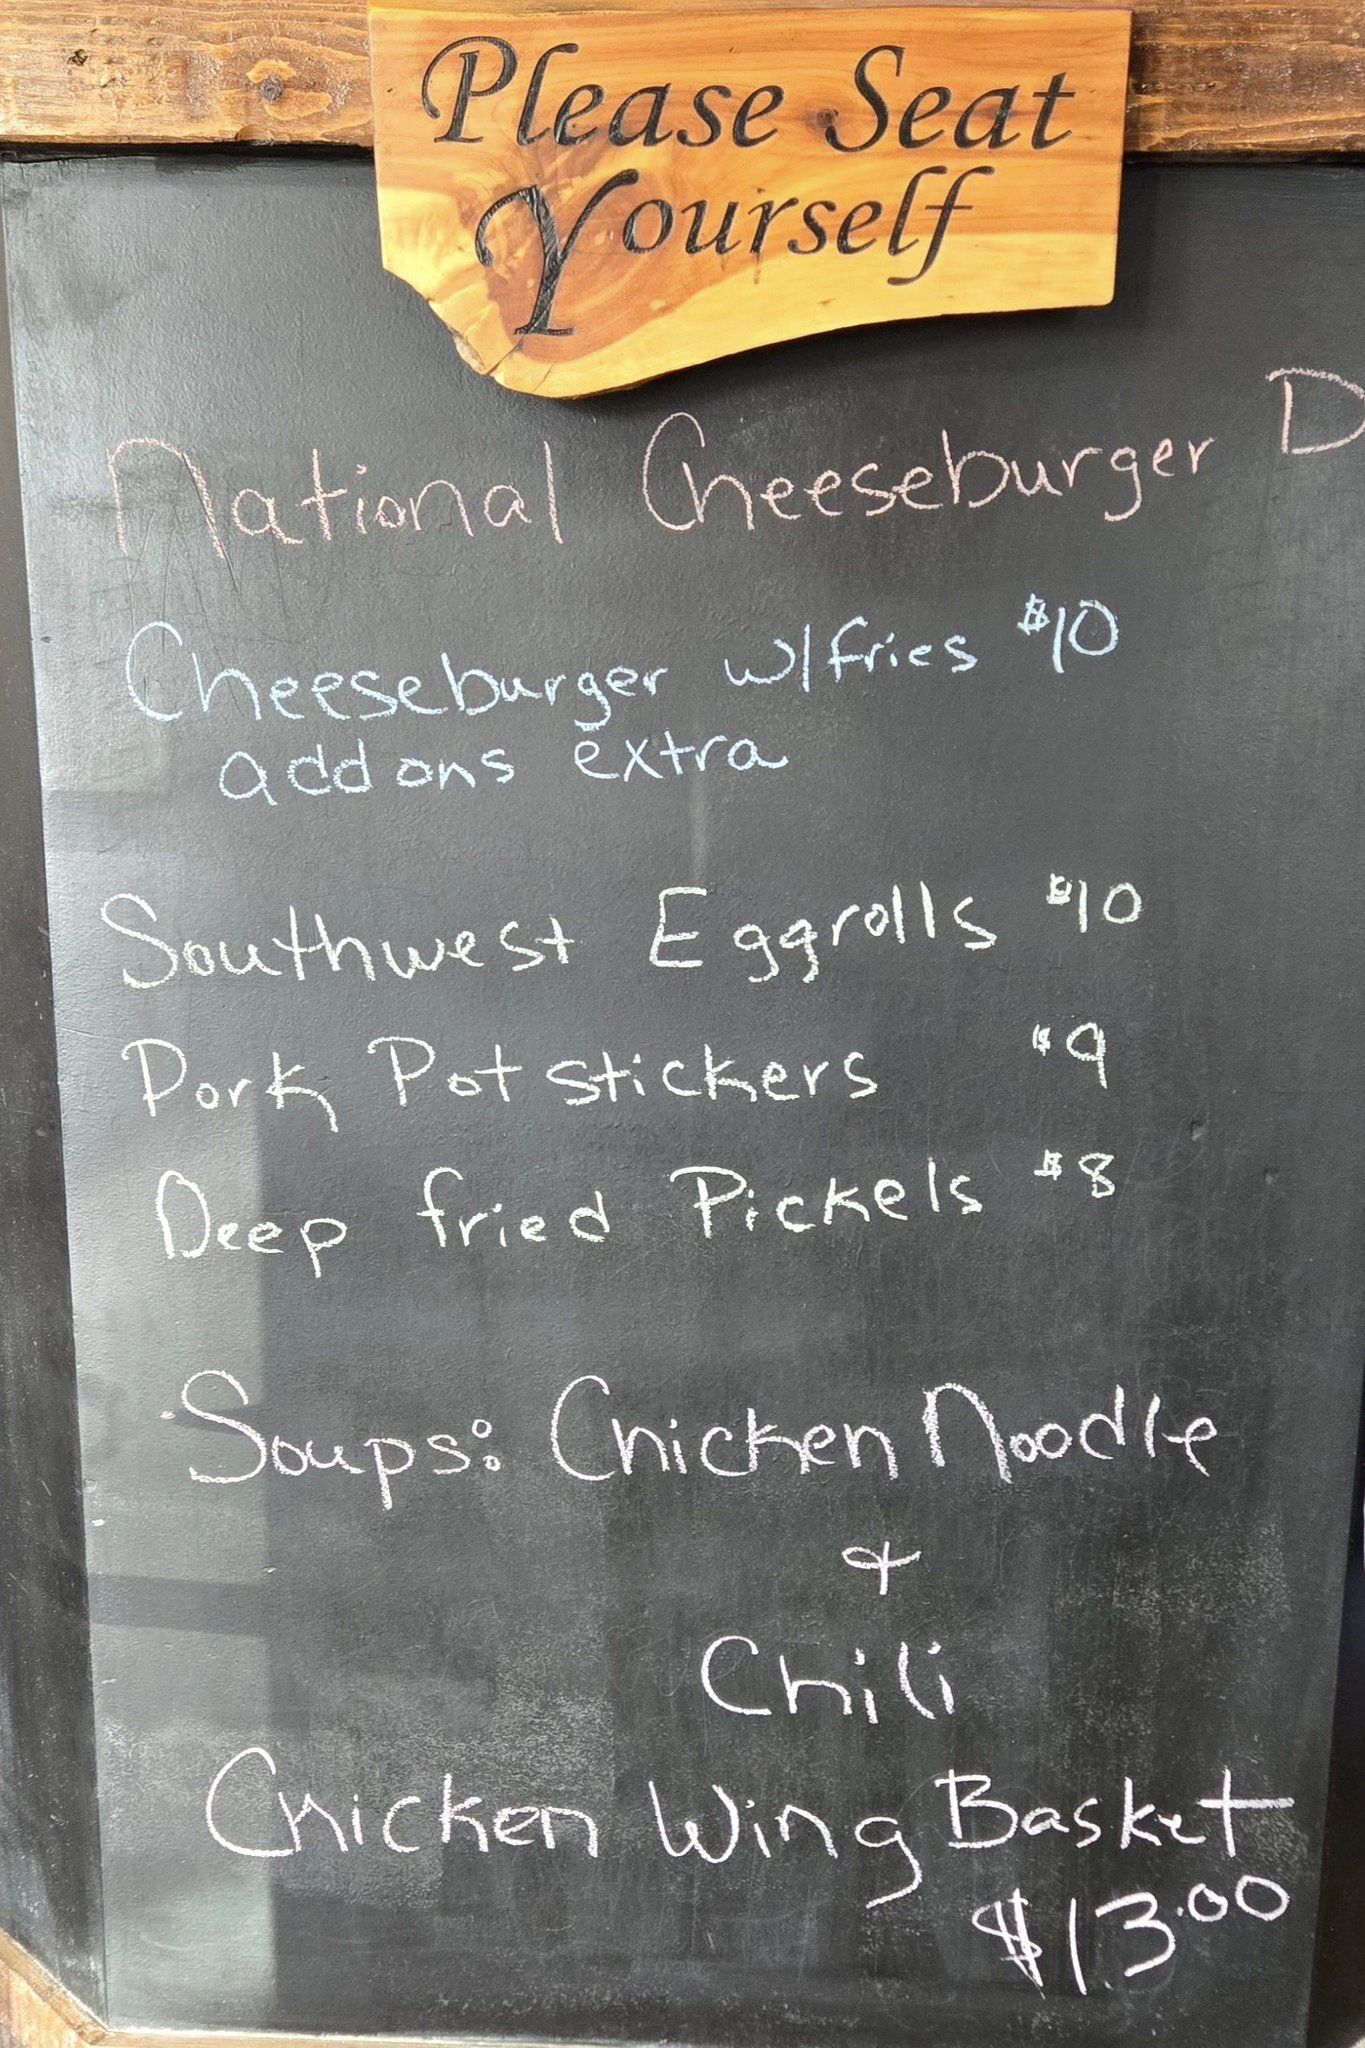 Please Seat
Yourself
National Cheeseburger D
Cheeseburger w/fries $10
add ons extra
Southwest Eggrolls $10
Pork Potstickers $9
Deep fried Pickels $8
Soups: Chicken Noodle
+
Chili
Chicken Wing Basket
$13.00